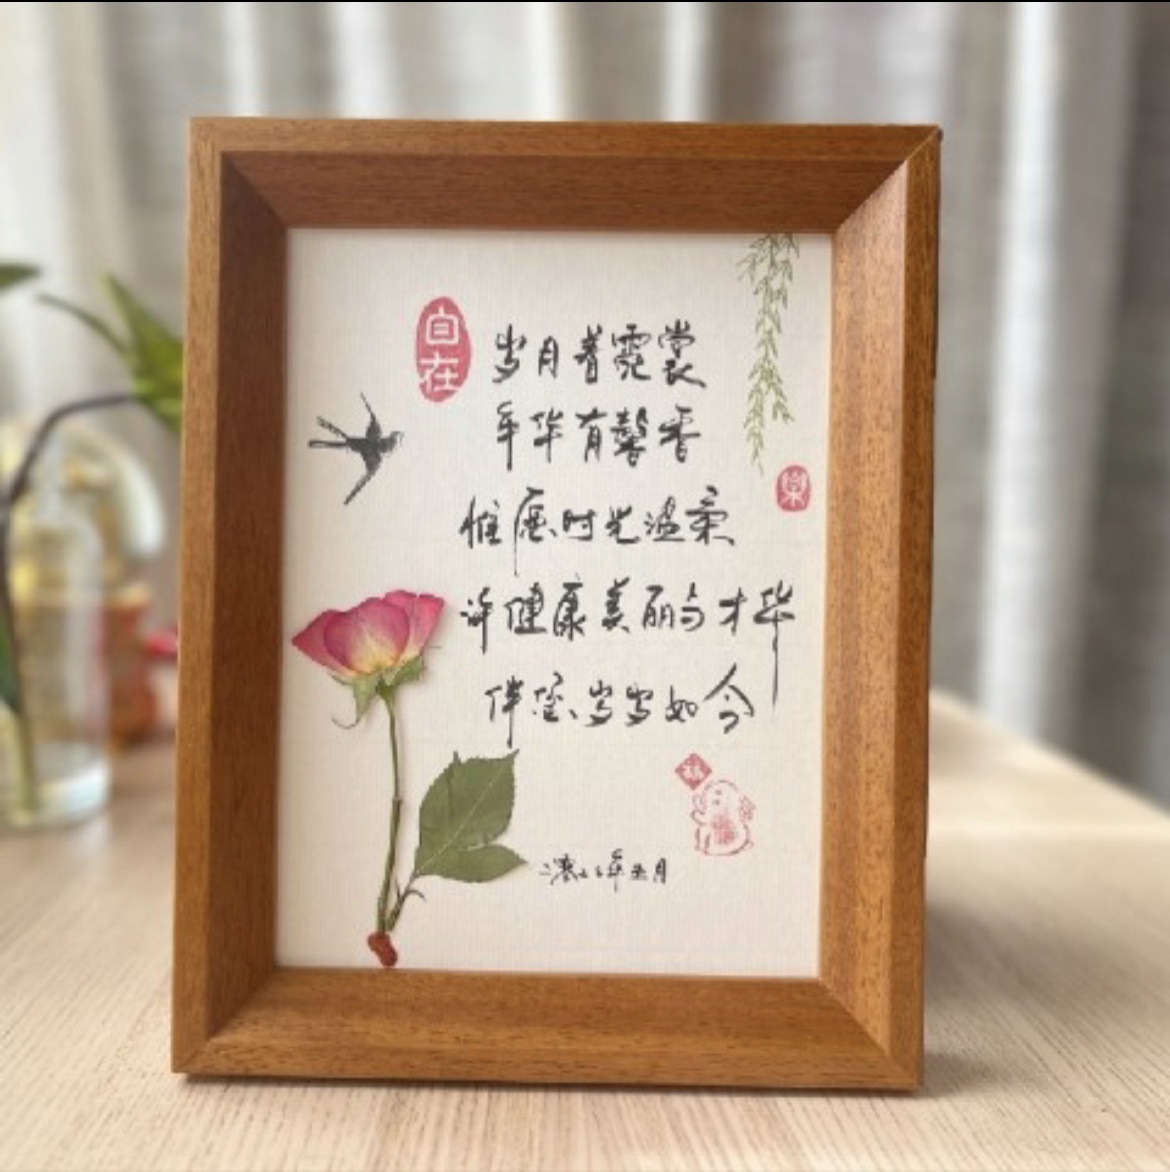 自在
岁月着霓裳
年华有馨香
惟愿时光温柔
许健康美丽与才华
伴您岁岁如今
福
二零二三年五月